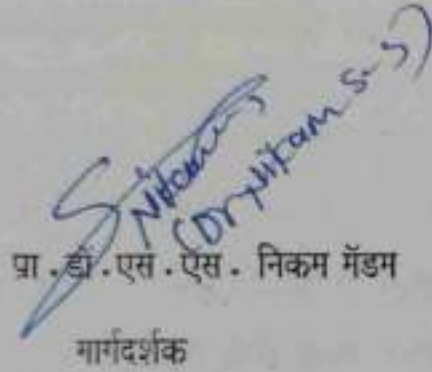 SNikam
(Dr. Nikam S.S)
प्रा.डॉ.एस.एस. निकम मॅडम
गार्गदर्शक